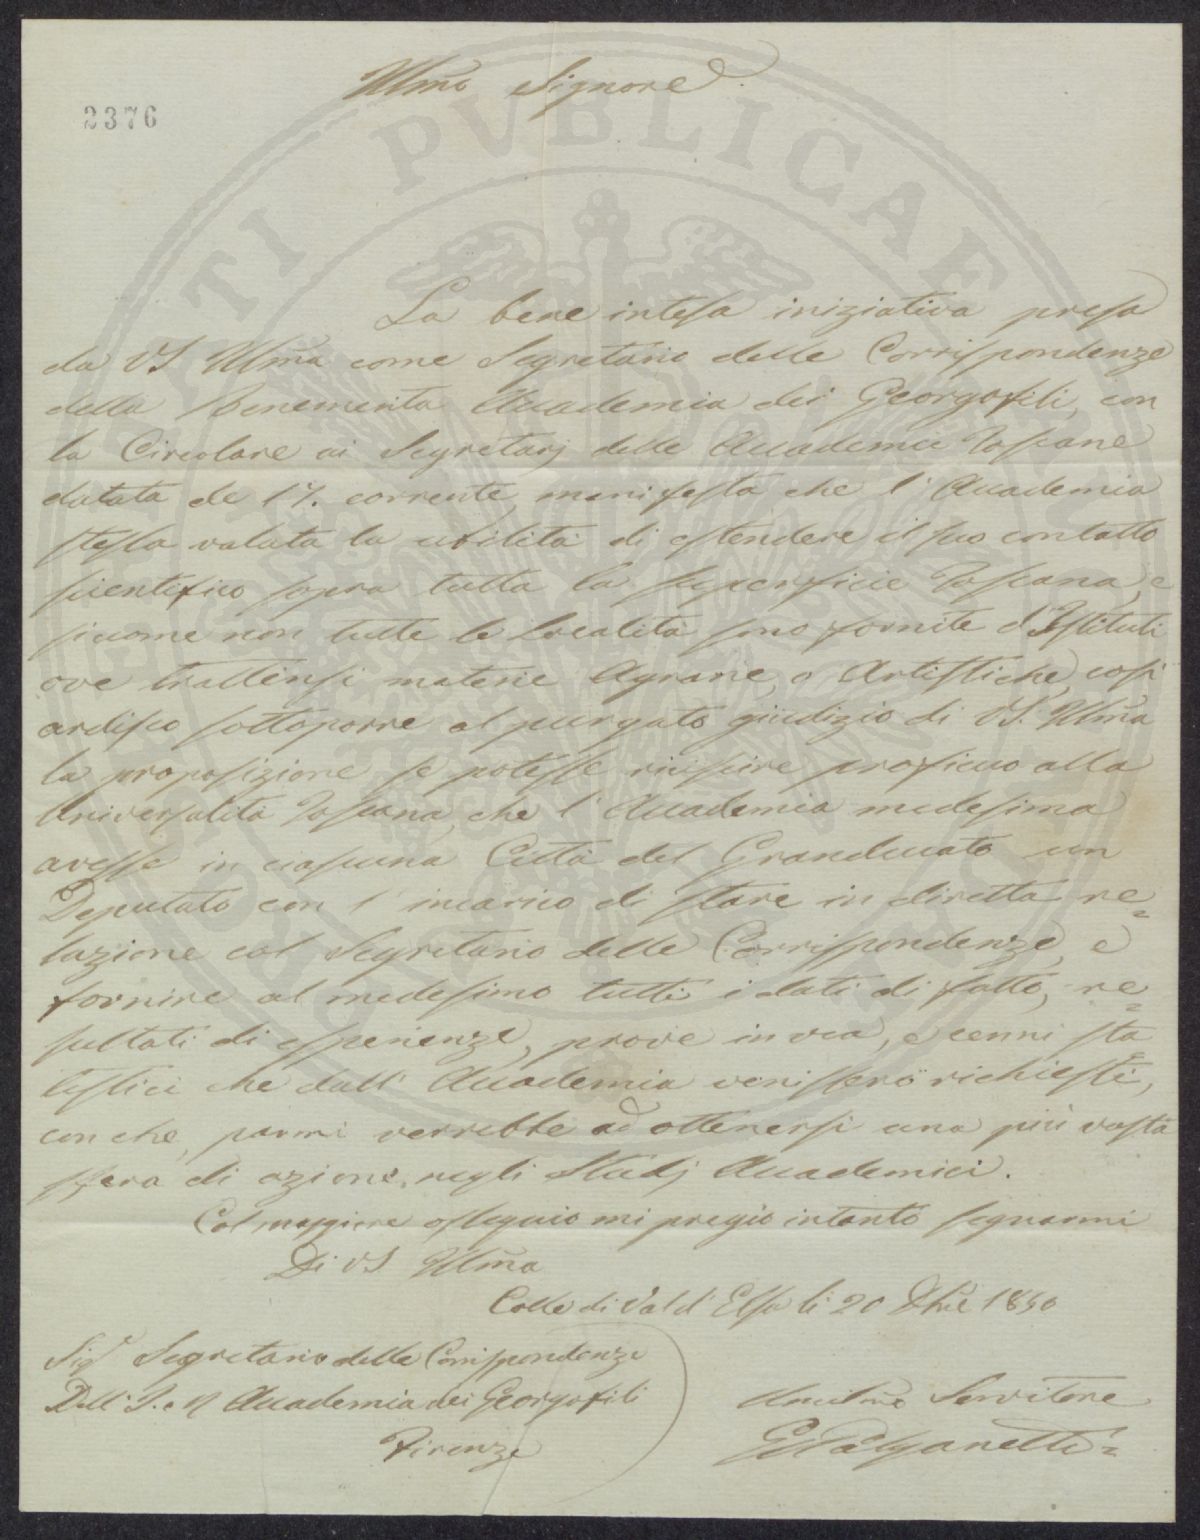 Illmo Signore
2376
La bene intesa iniziativa presa
da VS Illma come Segretario delle Corrispondenze
della Benemerita Accademia dei Georgofili, con
la Circolare ai Segretarj delle Accademie Toscane
datata de 17. corrente, manifesta che l'Accademia
stessa valuta la utilità di estendere il suo contatto
scientifico sopra tutta la superficie Toscana, e
siccome non tutte le Località sono fornite d'Istituti
ove trattensi materie Agrarie, o Artistiche, così
ardisco sottoporre al purgato giudizio di VS. Illma
la proposizione se potesse riuscire proficuo alla
Universalità Toscana, che l'Accademia medesima
avesse in ciascuna Città del Granducato un
Deputato con l'incarico di stare in diretta re=
lazione col Segretario delle Corrispondenze, e
fornire al medesimo tutti i dati di fatto, re=
sultati di esperienze, prove in via, e cenni sta
tistici che dall'Accademia venissero richiesti,
con che, parmi verrebbe ad ottenersi una più vasta
sfera di azione, negli Studj Accademici.
Col maggiore ossequio mi pregio intanto segnarmi
Di VS Illma
Colle di Val d'Elsa li 20 Xbre 1850
Sigr Segretario delle Corrispondenze
Dell' I. e R Accademia dei Georgofili
Firenze
Umilmo Servitore
PVBLICAE